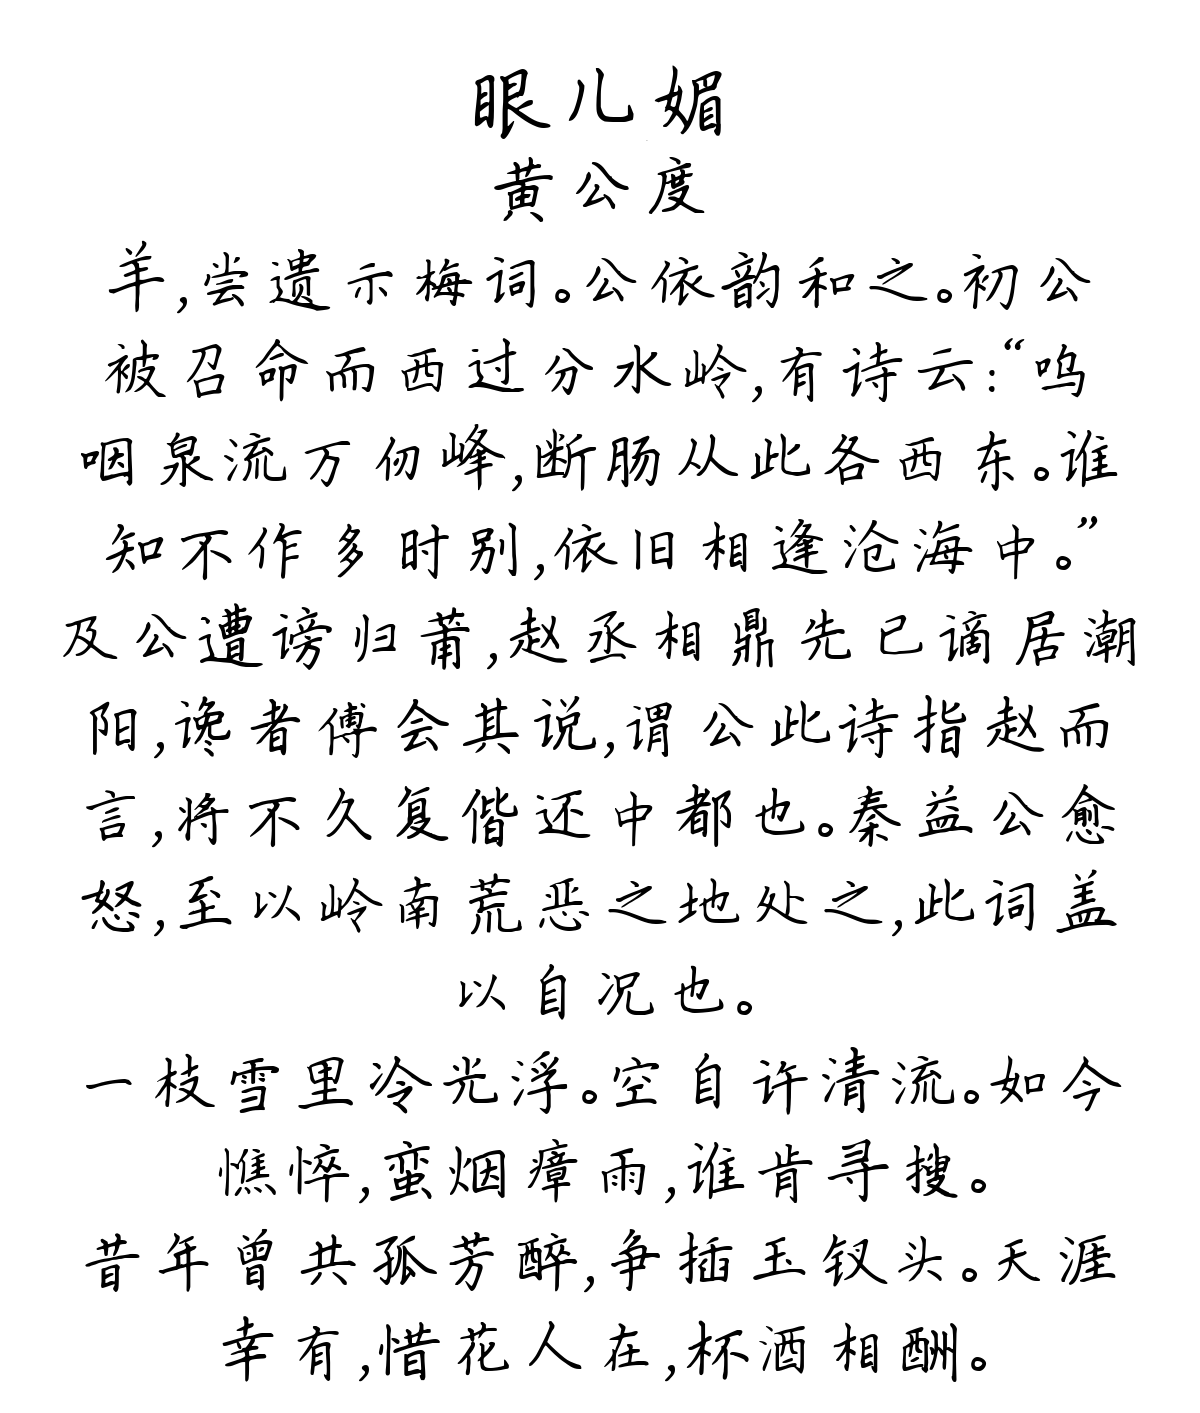 眼儿媚
黄公度
羊,尝遗示梅词。公依韵和之。初公
被召命而西过分水岭,有诗云:“呜
咽泉流万仞峰,断肠从此各西东。谁
知不作多时别,依旧相逢沧海中。”
及公遭谤归莆,赵丞相鼎先已谪居潮
阳,谗者傅会其说,谓公此诗指赵而
言,将不久复偕还中都也。秦益公愈
怒,至以岭南荒恶之地处之,此词盖
以自况也。
一枝雪里冷光浮。空自许清流。如今
憔悴,蛮烟瘴雨,谁肯寻搜。
昔年曾共孤芳醉,争插玉钗头。天涯
幸有,惜花人在,杯酒相酬。